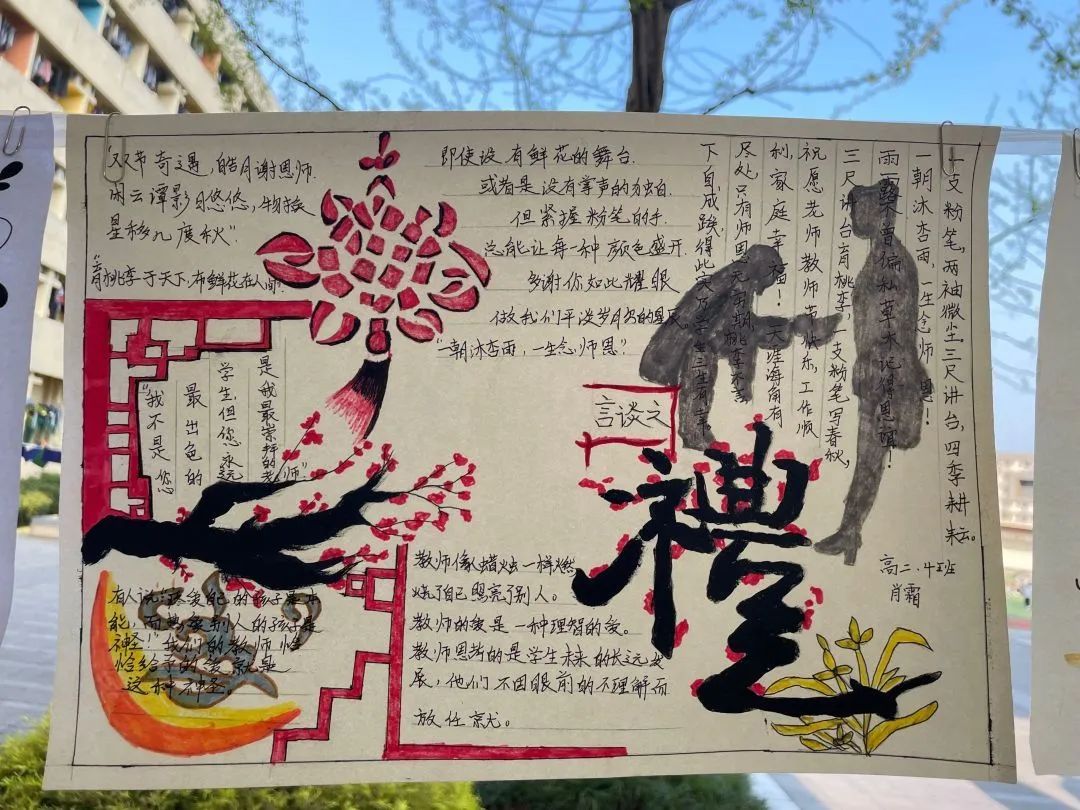 "双节奇遇,皓月谢恩师.
闲云谭影日悠悠,物换
星移几度秋".
"育桃李于天下,布鲜花在人间.
即使没有鲜花的舞台.
或者是没有掌声的独白.
但紧握粉笔的手.
总能让每一种颜色盛开.
多谢你如此耀眼
做我们平淡岁月里的星辰.
"一朝沐杏雨,一生念师恩".
"我不是您
最出色的
学生,但您永远
是我最崇拜的老师".
一支粉笔,两袖微尘,三尺讲台,四季耕耘。
一朝沐杏雨,一生念师恩!
雨露不曾偏私,草木记得恩
三尺讲台育桃李,一支粉笔写春秋,
祝愿老师教师节快乐,工作顺
利,家庭幸福!天涯海角有
尽处,只有师恩无穷期,桃李不言
下自成蹊,得此
言谈之
禮
高二.4班
肖霜
有人说:"
能,而热爱别人的孩子是
神圣."我们的教师恰
恰给予的爱就是
这种神圣。
教师像蜡烛一样燃
烧了自己照亮了别人。
教师的爱是一种理智的爱。
教师思考的是学生未来的长远发
展,他们不因眼前的不理解而
放任